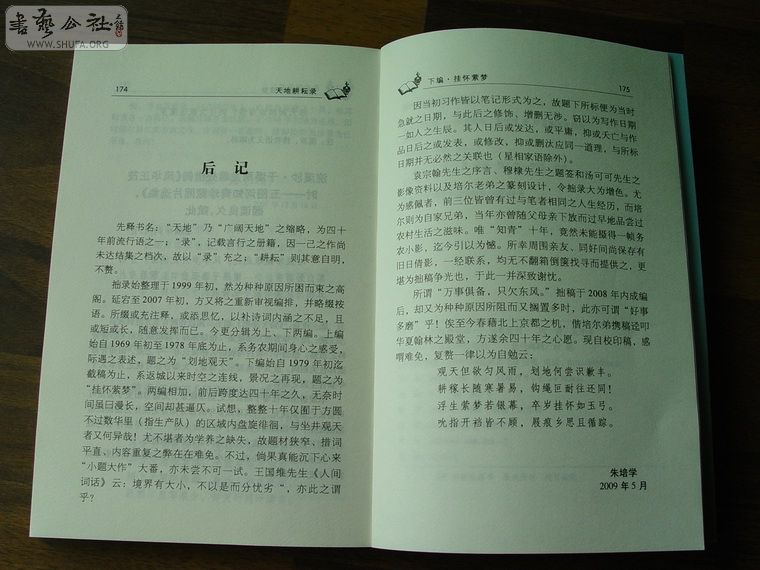 書藝公社
WWW.SHUFA.ORG
174
天地耕耘录
后 记
先释书名:“天地”乃“广阔天地”之缩略,为四十
年前流行语之一;“录”,记载言行之册籍,因一己之作尚
未达结集之档次,故以“录”充之;“耕耘”则其意自明,
不赘。
拙录始整理于 1999 年初,然为种种原因所困而束之高
阁。延宕至 2007 年初,方又将之重新审视编排,并略缀按
语。所缀或充注释,或添思忆,以补诗词内涵之不足,且
或短或长,随意发挥而已。今更分辑为上、下两编。上编
始自 1969 年初至 1978 年底为止,系务农期间身心之感受,
际遇之表述,题之为“划地观天”。下编始自 1979 年初迄
截稿为止,系返城以来时空之连线,景况之再现,题之为
“挂怀紫梦”。两编相加,前后跨度达四十年之久,无奈时
间虽曰漫长,空间却甚逼仄。试想,整整十年仅囿于方圆
不过数华里(指生产队)的区域内盘旋徘徊,与坐井观天
者又何异哉!尤不堪者为学养之缺失,故题材狭窄、措词
平直、内容重复之弊在在难免。不过,倘果真能沉下心来
“小题大作”大番,亦未尝不可一试。王国维先生《人间
词话》云:境界有大小,不以是而分忧劣“,亦此之谓
乎?
下编·挂怀紫梦
175
因当初习作皆以笔记形式为之,故题下所标便为当时
急就之日期,与此后之修饰、增删无涉。窃以为写作日期
一如人之生辰。其人日后或发达,或平庸,抑或夭亡与作
品日后之或发表,或修改,抑或删汰应同一道理,与所标
日期并无必然之关联也(星相家语除外)。
袁宗翰先生之序言、穆棣先生之题签和汤可可先生之
影像资料以及培尔老弟之篆刻设计,令拙录大为增色。尤
为感佩者,前三位皆曾有过与笔者相同之人生经历,而培
尔则为自家兄弟,当年亦曾随父母亲下放而过早地品尝过
农村生活之滋味。唯“知青”十年,竟然未能摄得一帧务
农小影,迄今引以为憾。所幸周围亲友、同好间尚保存有
旧日倩影,一经联系,均无不翻箱倒箧找寻而提供之,更
堪为拙稿争光也,于此一并深致谢忱。
所谓“万事俱备,只欠东风。”拙稿于 2008 年内成编
后,却又为种种原因所阻而又搁置多时,此亦可谓“好事
多磨”乎!俟至今春藉北上京都之机,借培尔弟携稿迳叩
华夏翰林之殿堂,方遂余四十年之心愿。现自校印稿,感
喟难免,复赘一律以为自勉云:
观天但欲匀风雨,划地何尝识歉丰。
耕稼长随寒暑易,钩绳叵耐往还同!
浮生紫梦若银幕,卒岁挂怀如玉弓。
吮指开裆皆不顾,屐痕乡思且循踪。
朱培学
2009 年 5 月